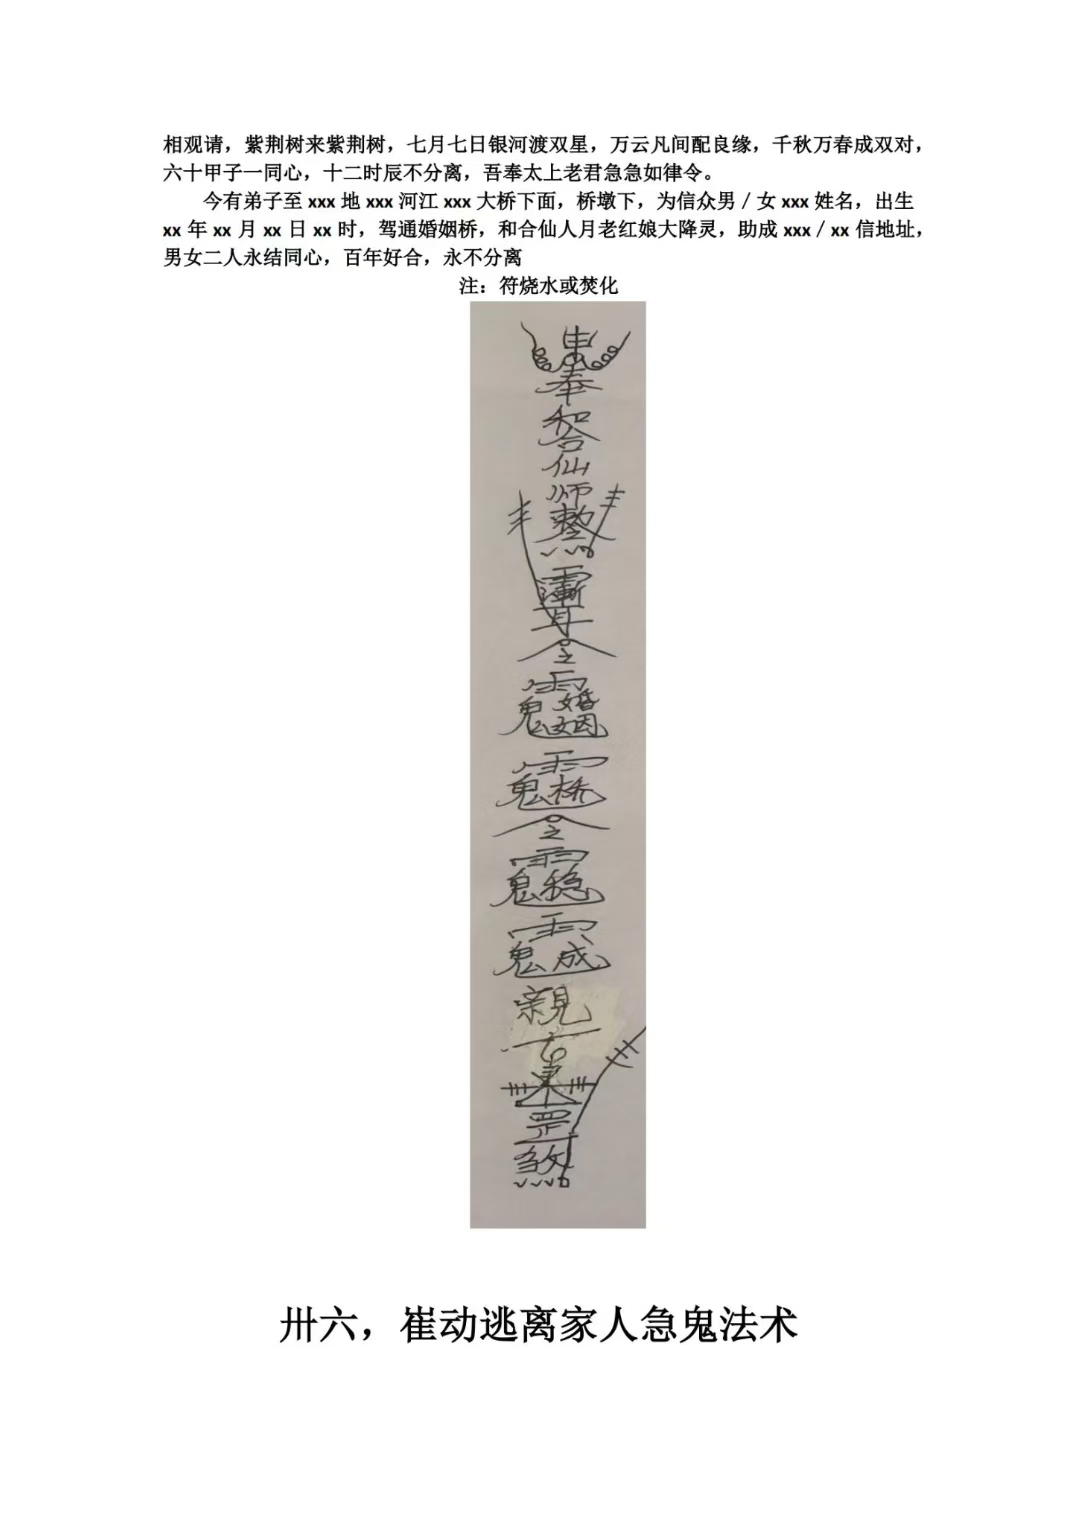 相观请，紫荆树来紫荆树，七月七日银河渡双星，万云凡间配良缘，千秋万春成双对，
六十甲子一同心，十二时辰不分离，吾奉太上老君急急如律令。
今有弟子至 xxx 地 xxx 河江 xxx 大桥下面，桥墩下，为信众男／女 xxx 姓名，出生
xx 年 xx 月 xx 日 xx 时，驾通婚姻桥，和合仙人月老红娘大降灵，助成 xxx／xx 信地址，
男女二人永结同心，百年好合，永不分离
注：符烧水或焚化
奉
和合
仙
师
婚姻
桥
稳
成
親
罡
煞
卅六，崔动逃离家人急鬼法术